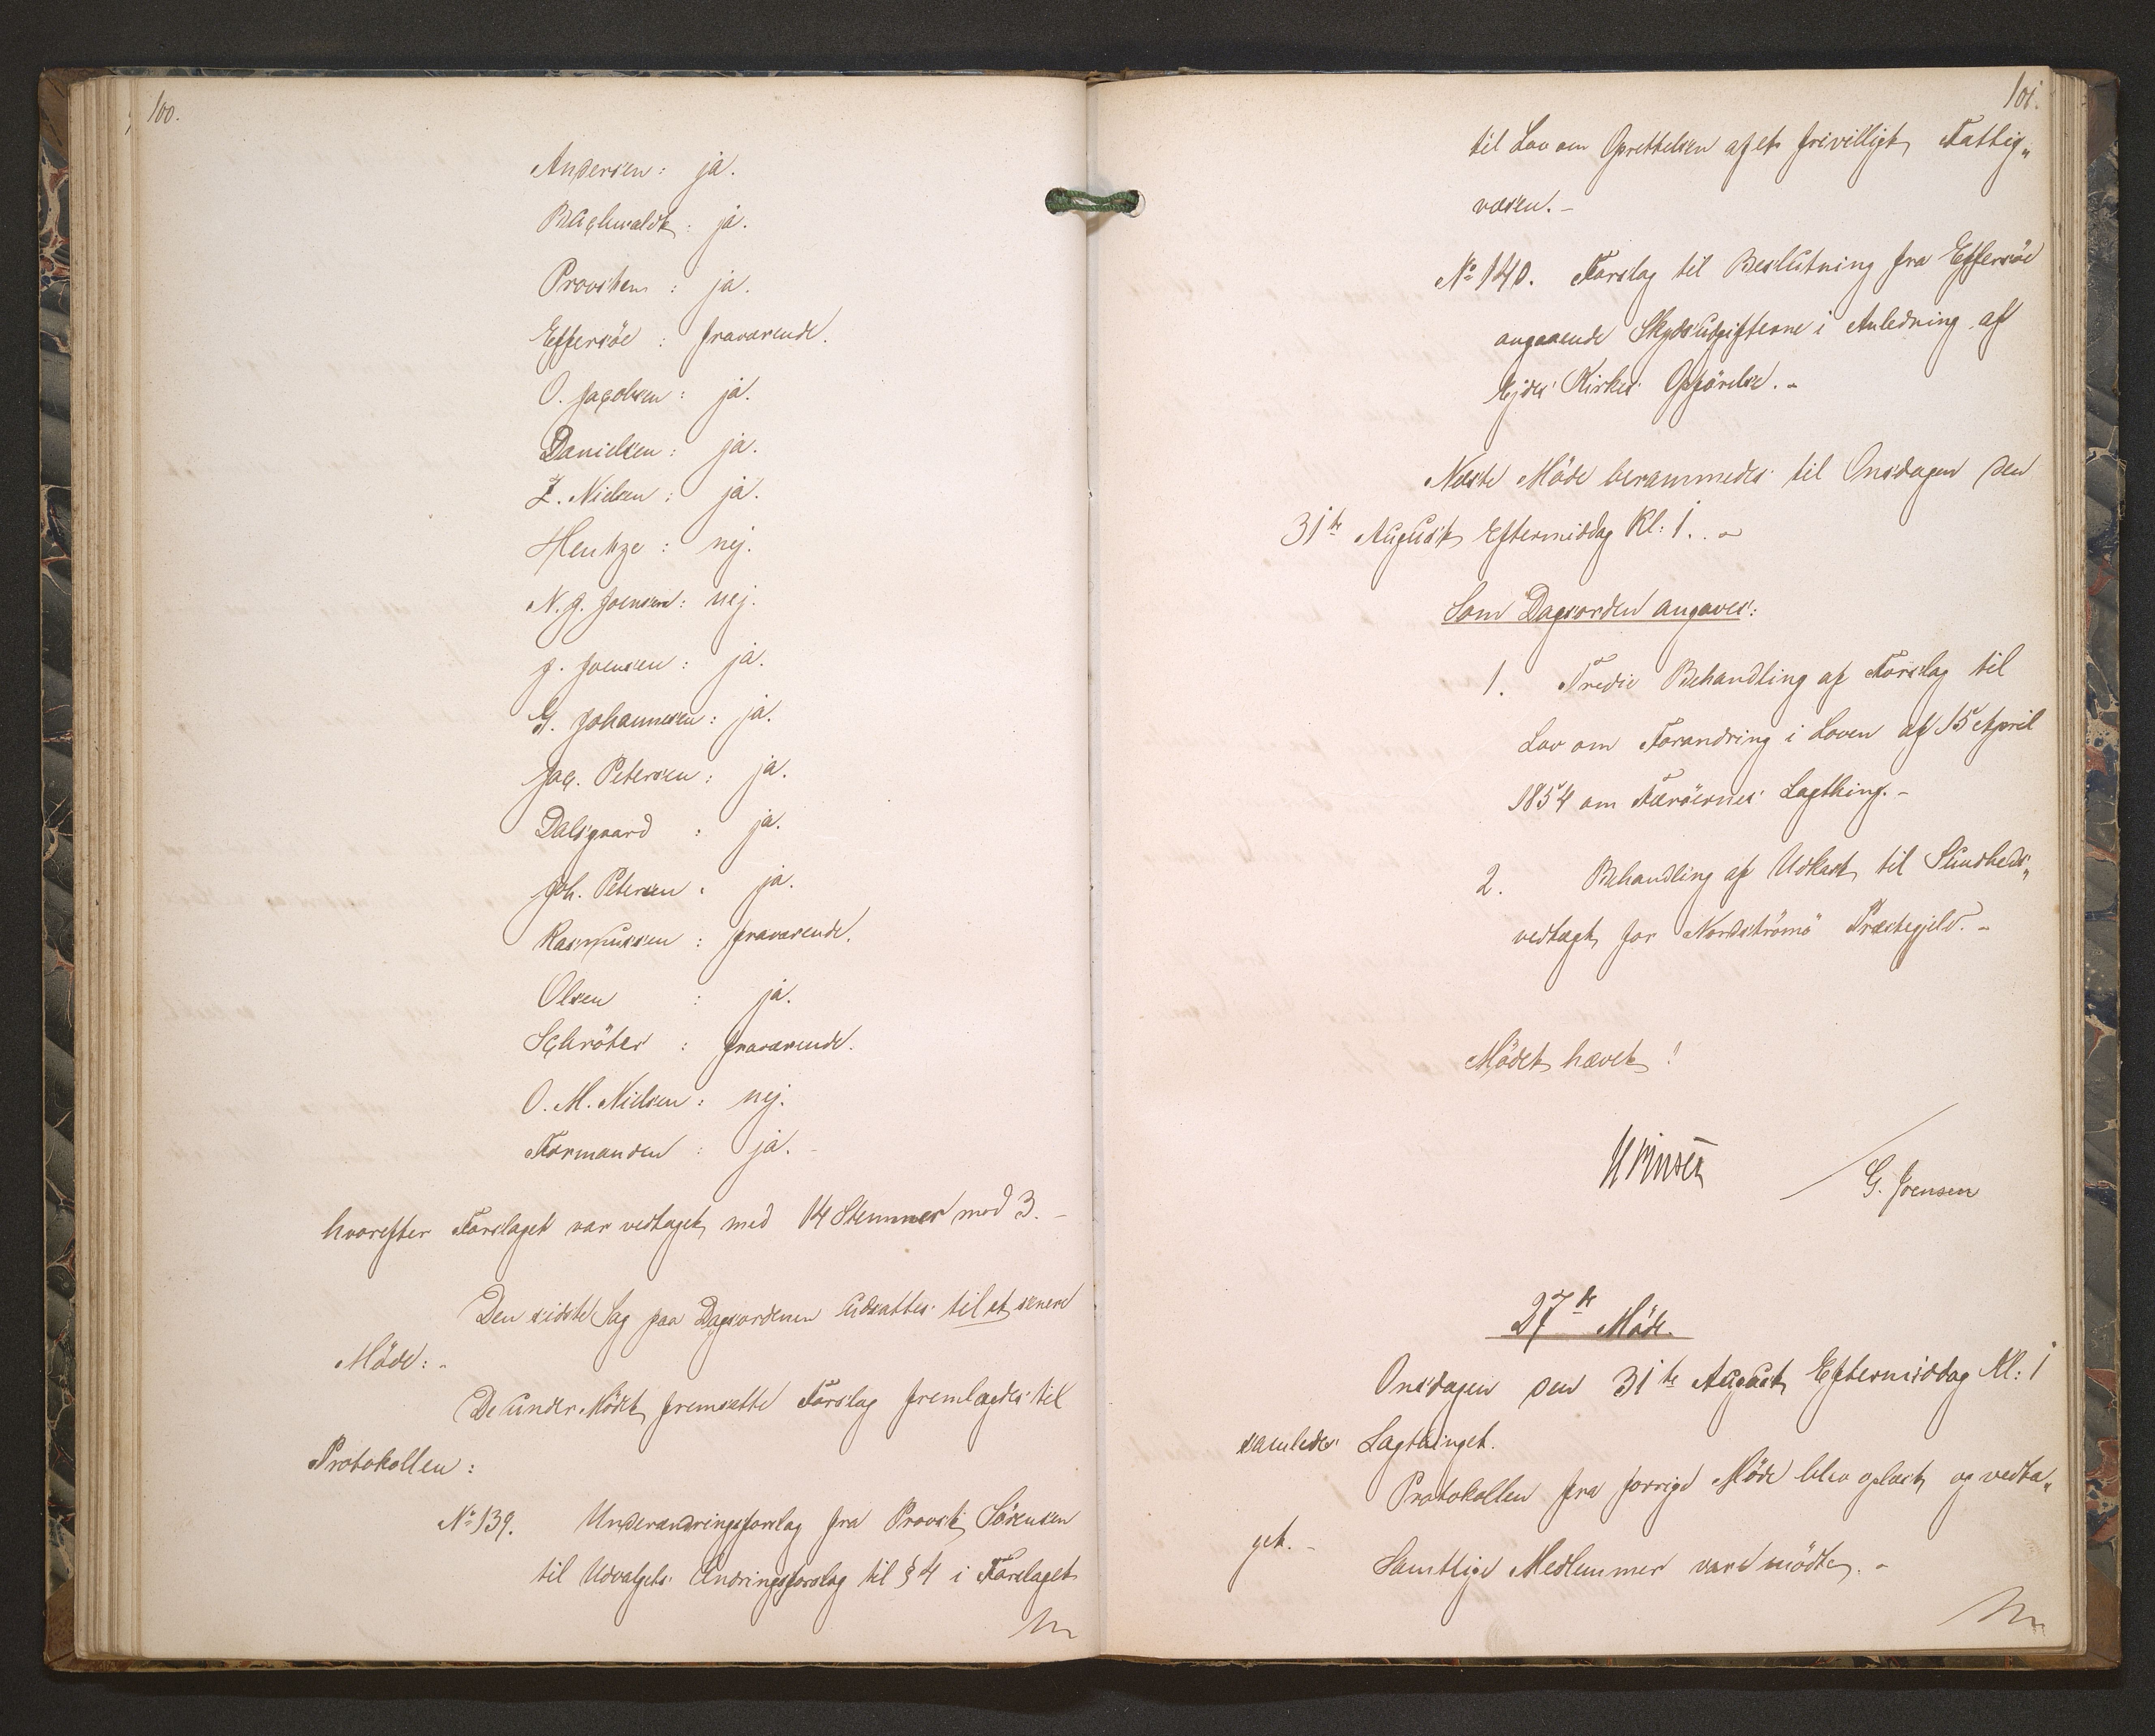 100.
Andersen: ja.
Buchwaldt: ja.
Provsten: ja.
Effersöe: fraværende.
O. Jacobsen: ja.
Danielsen: ja.
Z. Nielsen: ja.
Hentze: nej.
N. J. Joensen: nej.
J. Joensen: ja.
G. Johannesen: ja.
Jac. Petersen: ja.
Dalsgaard: ja.
Joh. Petersen: ja.
Rasmussen: fraværende.
Olsen: ja.
Schröter: fraværende.
O. M. Nielsen: nej.
Formanden: ja. -
hvorefter Forslaget var vedtaget med 14 Stemmer mod 3. -
Den sidste Sag paa Dagsordenen udsattes til et senere
Möde: -
De under Mödet fremsatte Forslag fremlagdes til
Protokollen:
No 139. Underændringsforslag fra Provst Sörensen
til Udvalgets Ændringsforslag til § 4 i Forslaget
101.
til Lov om Oprettelsen af et frivilligt Fattig„
væsen. -
No 140. Forslag til Beslutning fra Effersöe
angaaende Skydsudgifterne i Anledning af
Ejdes Kirkes Opförelse. -
Næste Möde berammedes til Onsdagen den
31te August Eftermiddag Kl: 1. . -
Som Dagsorden angaves:
1. Tredie Behandling af Forslag til
Lov om Forandring i Loven af 15 April
1854 om Færöernes Lagthing. -
2. Behandling af Udkast til Sundheds„
vedtægt for Nordströmö Præstegjeld. -
Mödet hævet!
G. Joensen
27de Möde.
Onsdagen den 31te August Eftermiddag Kl: 1
samledes Lagthinget.
Protokollen fra forrige Möde blev oplæst og vedta„
get. -
Samtlige Medlemmer vare mödte. -